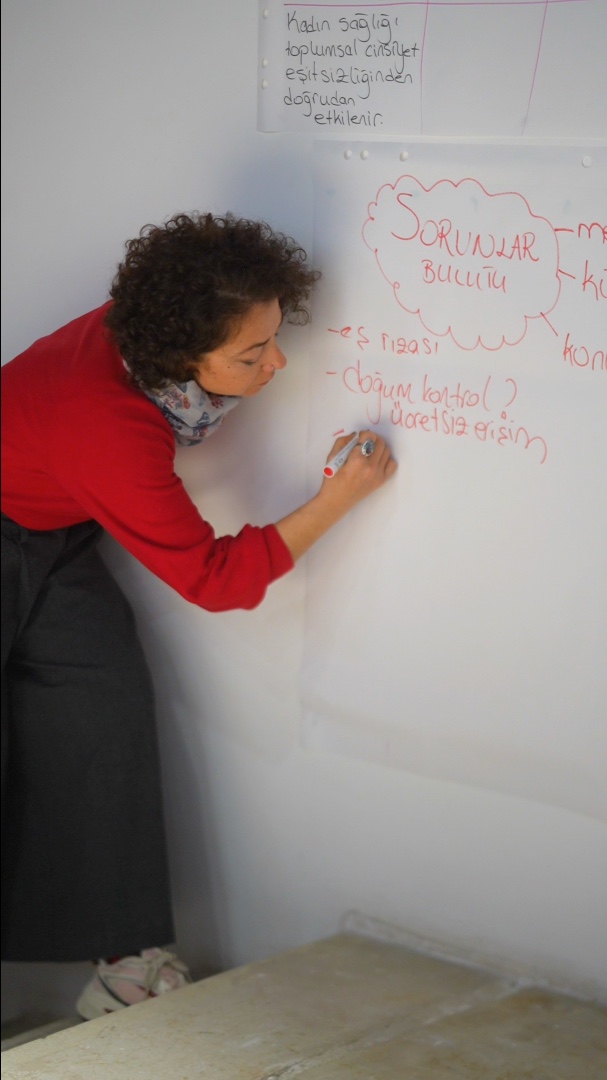 Kadın sağlığı
toplumsal cinsiyet
eşitsizliğinden
doğrudan
etkilenir.
SORUNLAR
BULUTU
- eş rızası
- doğum kontrol
ücretsiz erişim